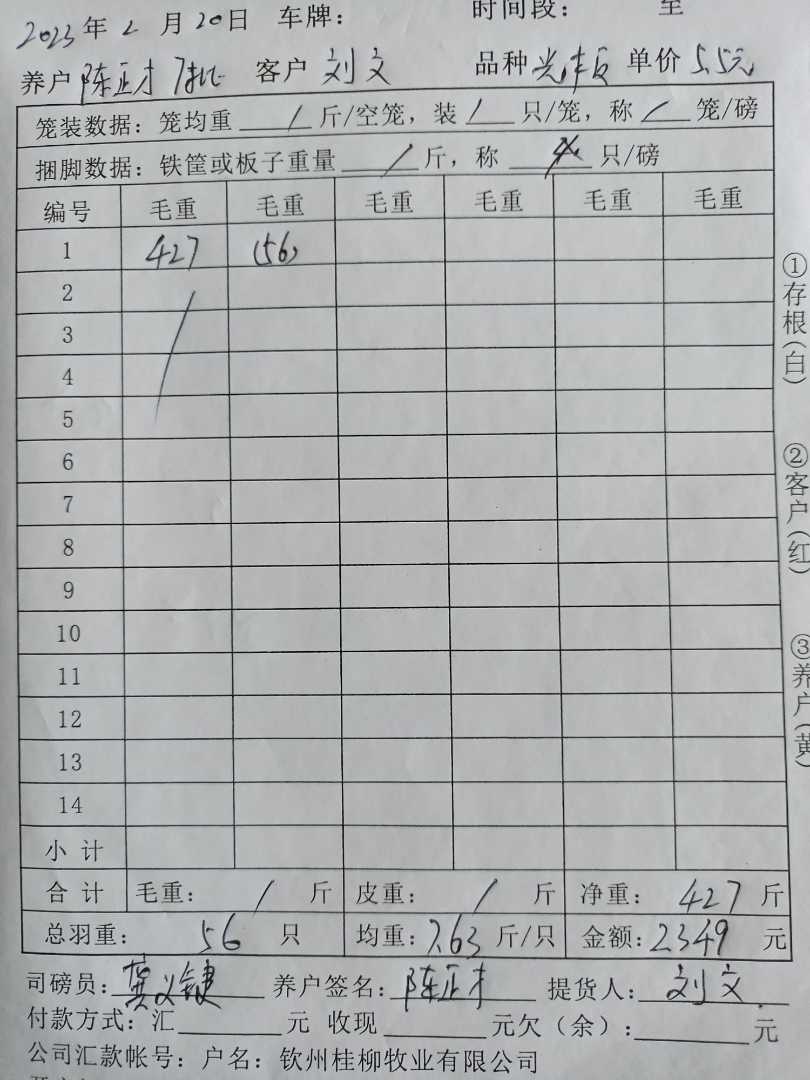 2023年2月20日 车牌: 时间段: 至
养户 陈正才 客户 刘文 品种 单价 5.5元
笼装数据: 笼均重 / 斤/空笼, 装 / 只/笼, 称 / 笼/磅
捆脚数据: 铁筐或板子重量 / 斤, 称 只/磅
编号 毛重 毛重 毛重 毛重 毛重 毛重
1 427 (56)
2
3
4
5
6
7
8
9
10
11
12
13
14
小计
合计 毛重: / 斤 皮重: / 斤 净重: 427 斤
总羽重: 56 只 均重: 7.63 斤/只 金额: 2349 元
司磅员: 龚义键 养户签名: 陈正才 提货人: 刘文
付款方式: 汇 元 收现 元欠(余): 元
公司汇款帐号: 户名: 钦州桂柳牧业有限公司
①存根(白)
②客户(红)
③养户(黄)